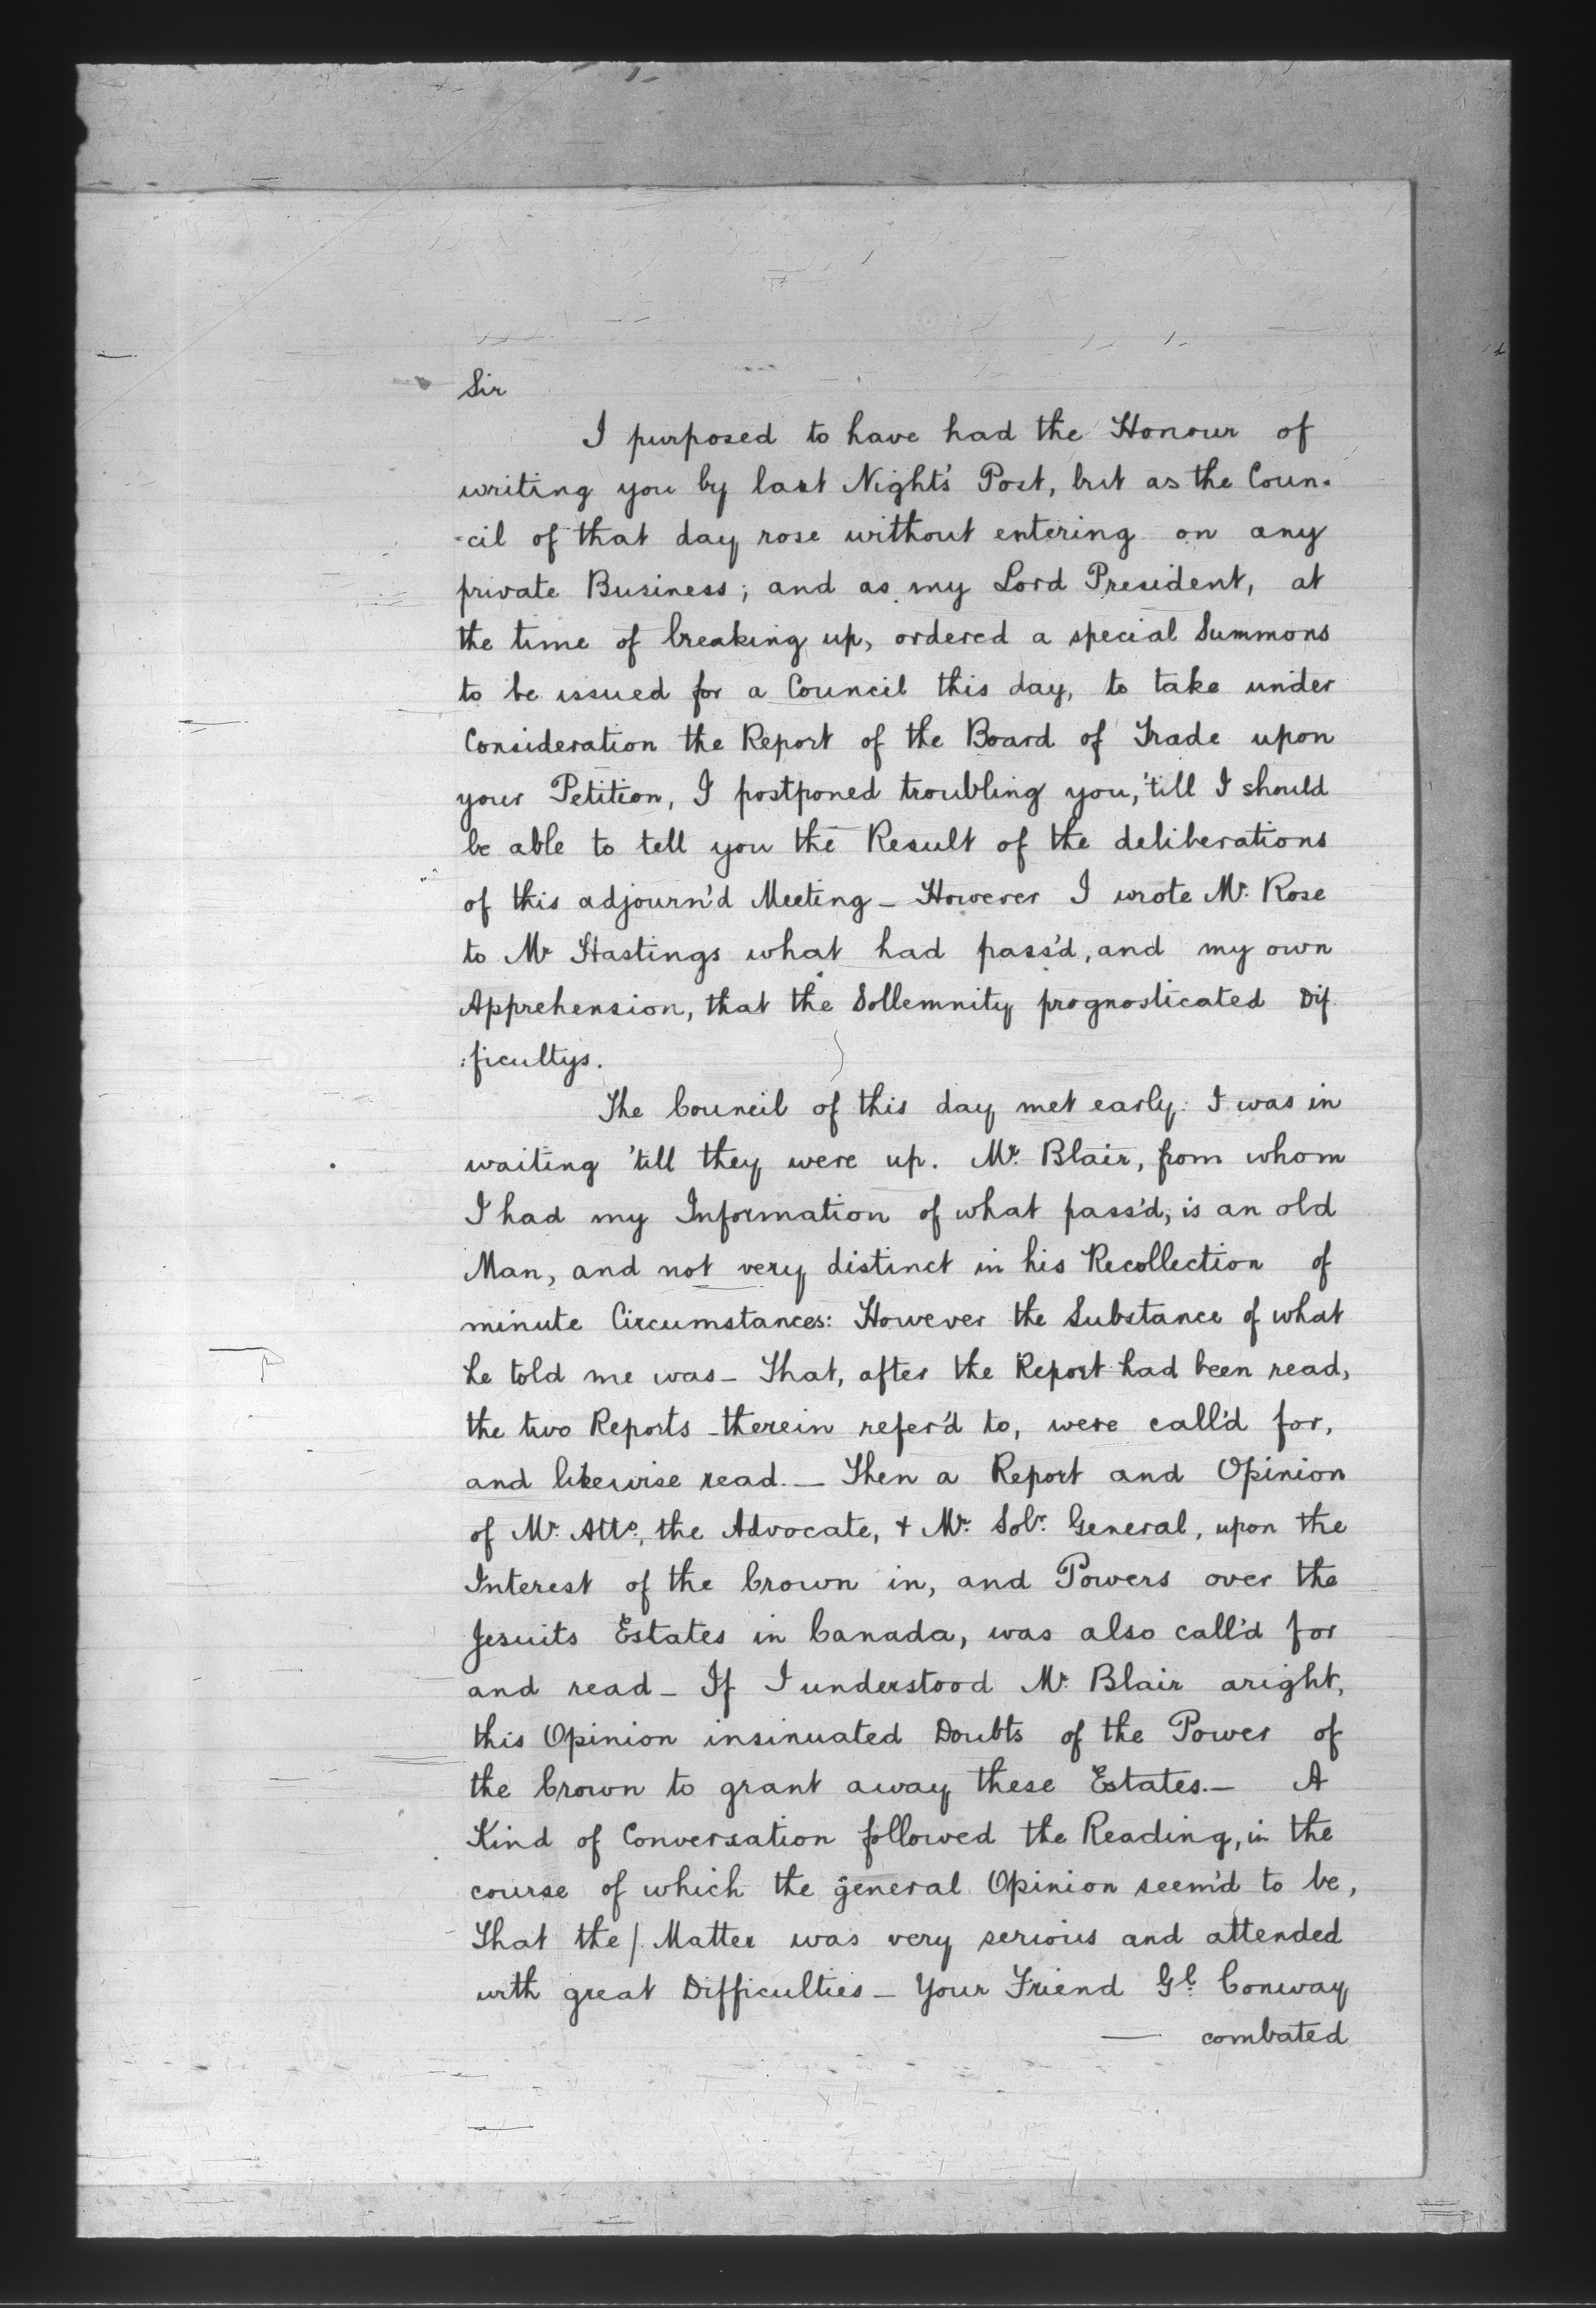 Sir
I purposed to have had the Honour of
writing you by last Night's Post, but as the Coun-
-cil of that day rose without entering on any
private Business; and as my Lord President, at
the time of breaking up, ordered a special Summons
to be issued for a Council this day, to take under
Consideration the Report of the Board of Trade upon
your Petition, I postponed troubling you, 'till I should
be able to tell you the Result of the deliberations
of this adjourn'd Meeting – However I wrote Mr. Rose
to Mr Hastings what had pass'd, and my own
Apprehension, that the Sollemnity prognosticated Dif
:ficultys.
The Council of this day met early: I was in
waiting 'till they were up. Mr. Blair, from whom
I had my Information of what pass'd, is an old
Man, and not very distinct in his Recollection of
minute Circumstances: However the Substance of what
he told me was – That, after the Report had been read,
the two Reports therein refer'd to, were call'd for,
and likewise read. – Then a Report and Opinion
of Mr. Atto., the Advocate, & Mr. Solr. General, upon the
Interest of the Crown in, and Powers over the
Jesuits Estates in Canada, was also call'd for
and read – If I understood Mr. Blair aright,
this Opinion insinuated Doubts of the Power of
the Crown to grant away these Estates. – A
Kind of Conversation followed the Reading, in the
course of which the general Opinion seem'd to be,
That the / Matter was very serious and attended
with great Difficulties – Your Friend Gl. Conway
— combated